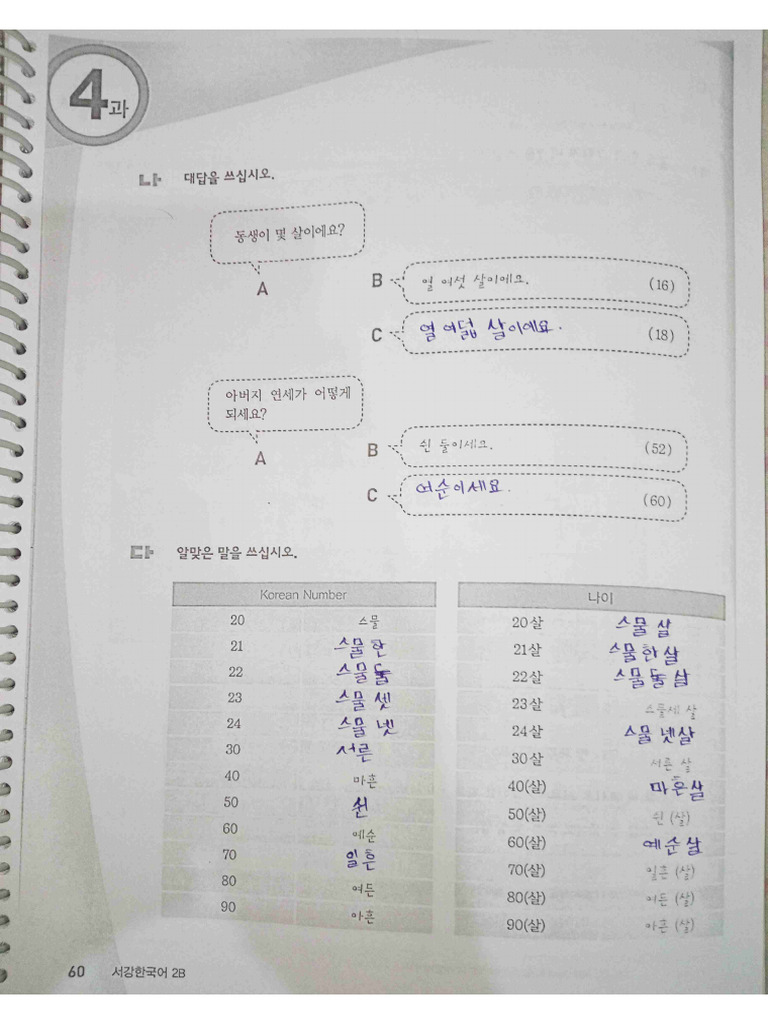 4과
나 대답을 쓰십시오.
동생이 몇 살이에요?
A
B 열 여섯 살이에요. (16)
C 열 여덟 살이에요. (18)
아버지 연세가 어떻게
되세요?
A
B 쉰 둘이세요. (52)
C 여순이세요. (60)
다 알맞은 말을 쓰십시오.
Korean Number
20 스물
21 스물 한
22 스물 둘
23 스물 셋
24 스물 넷
30 서른
40 마흔
50 쉰
60 예순
70 일흔
80 여든
90 아흔
나이
20살 스물 살
21살 스물 한 살
22살 스물 둘 살
23살 스물세 살
24살 스물 넷살
30살 서른 살
40(살) 마흔살
50(살) 쉰 (살)
60(살) 예순 살
70(살) 일흔 (살)
80(살) 여든 (살)
90(살) 아흔 (살)
60 서강한국어 2B